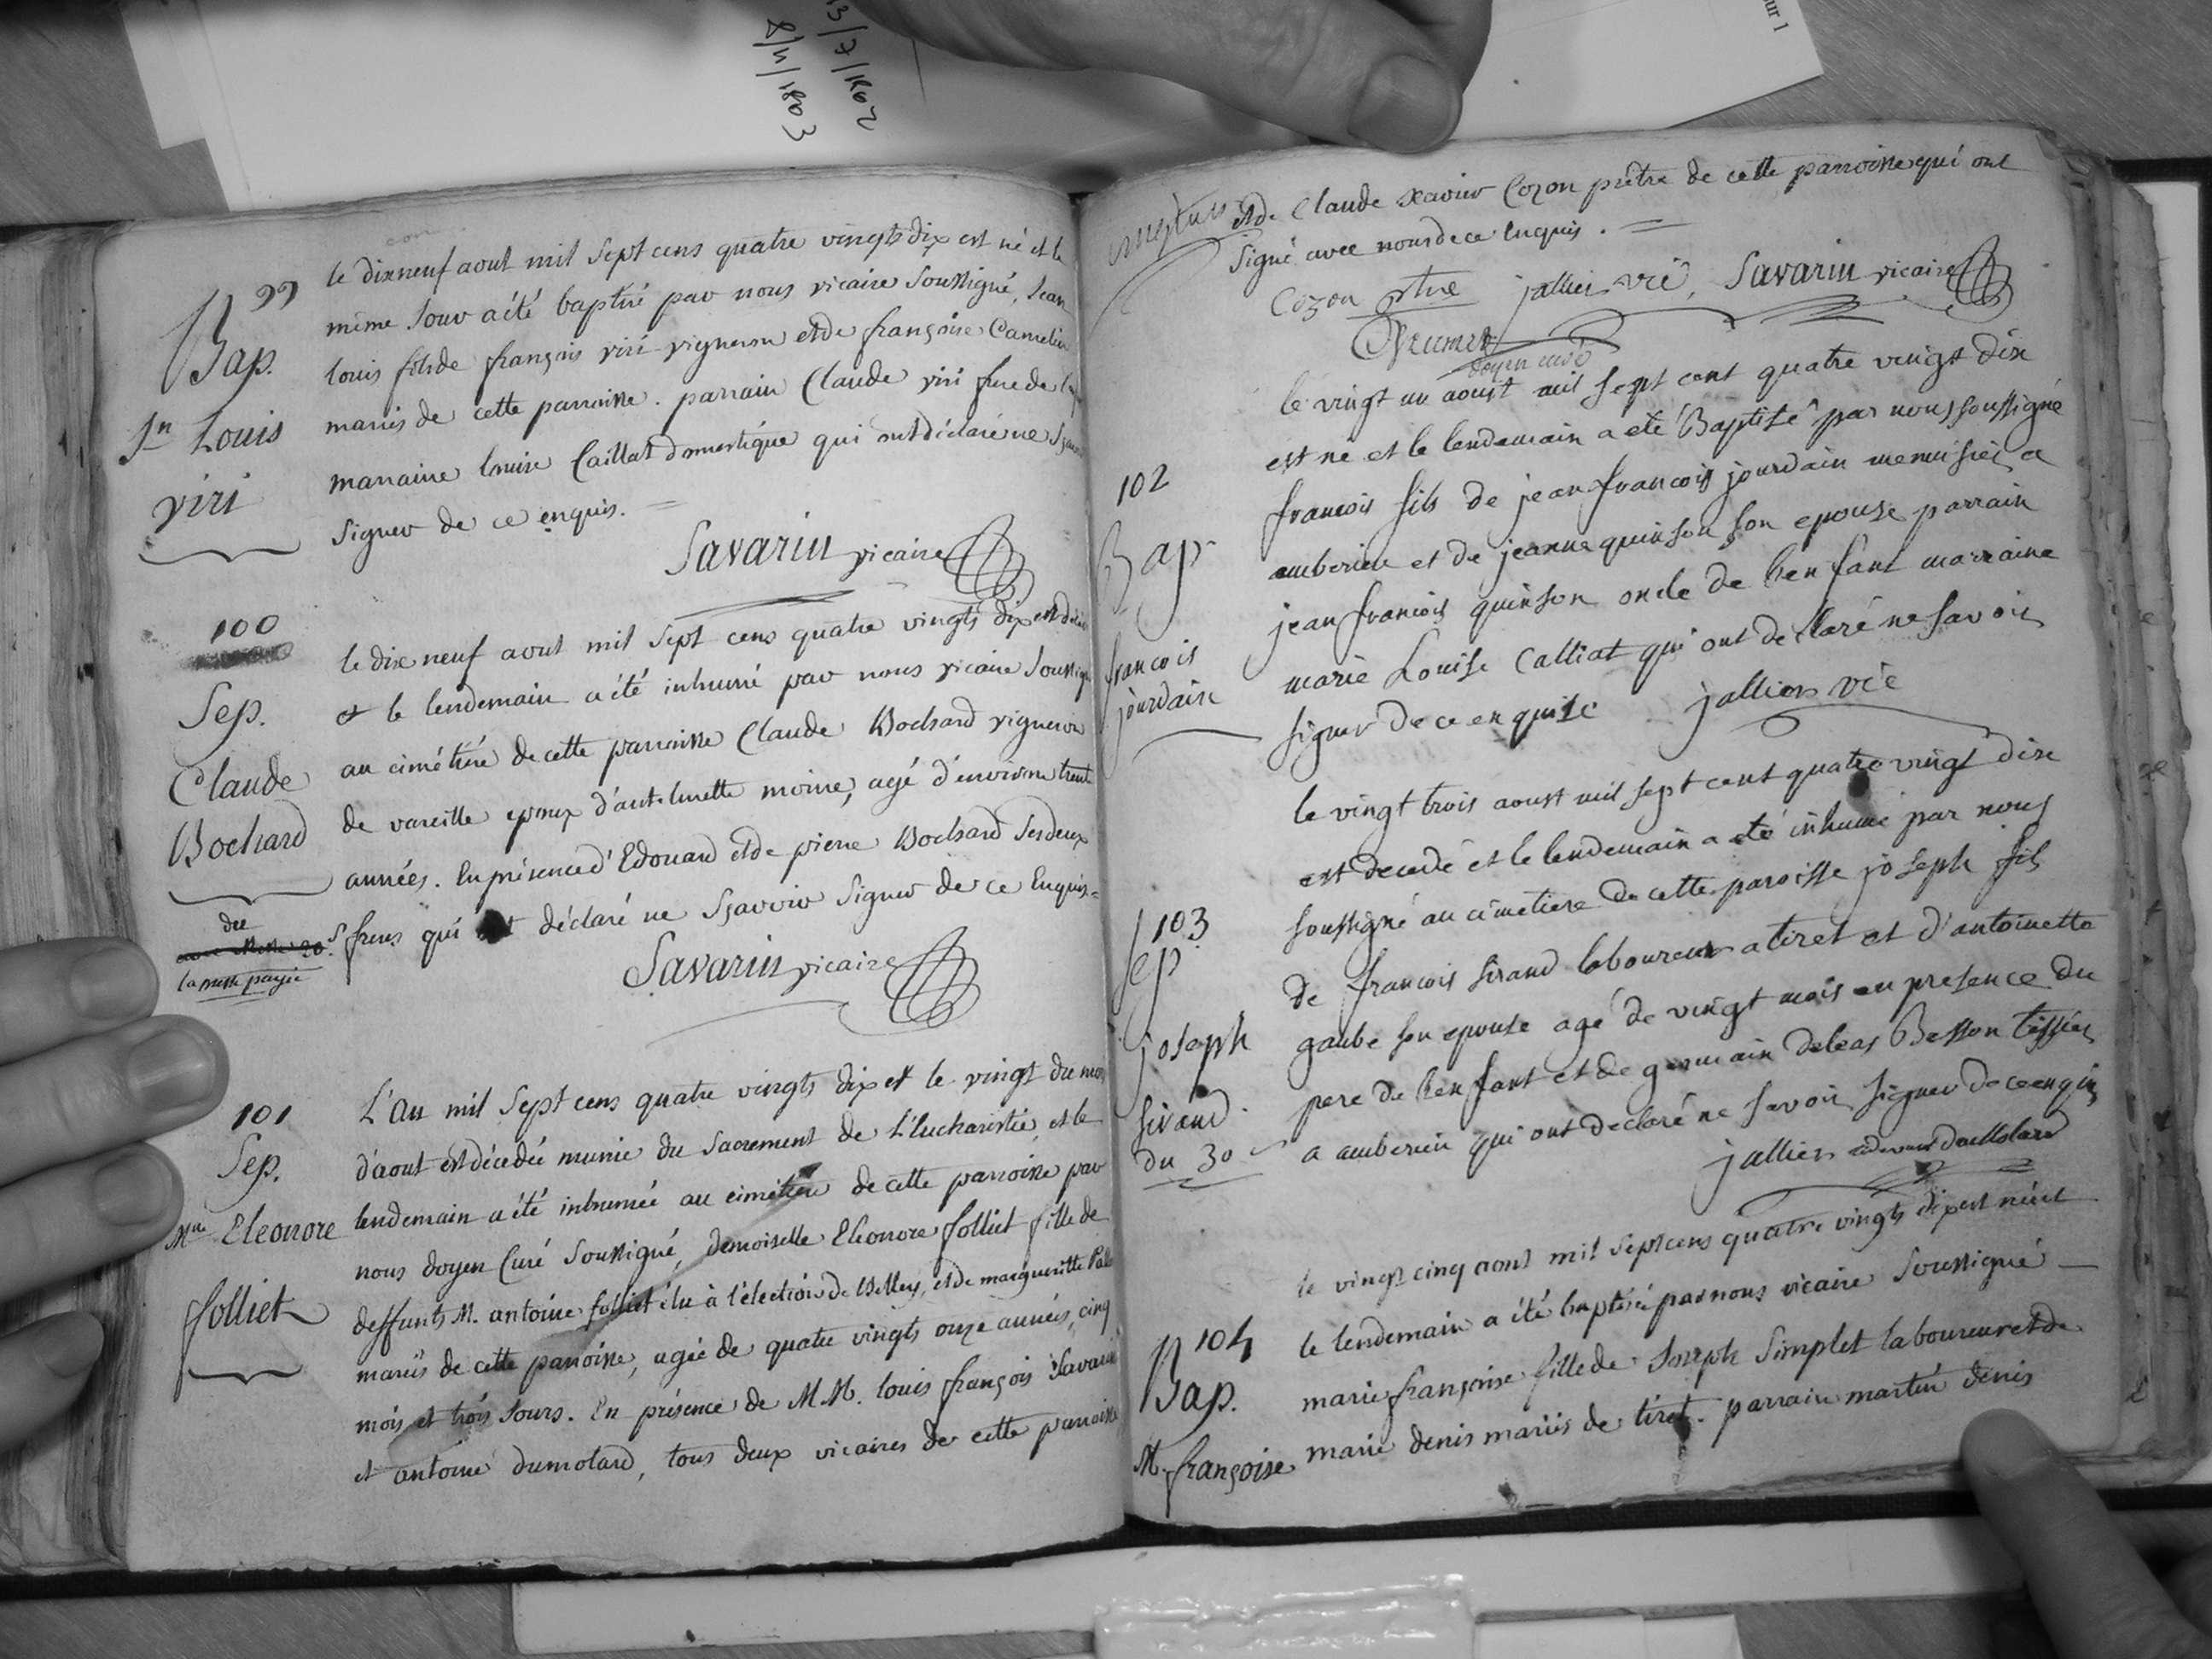 13/7/1802
8/11/1803
ur 1
99
Bap.
Jn Louis
viri
le dixneuf aout mil sept cens quatre vingts dix est né et le
même jour a été baptisé par nous vicaire soussigné, Jean
louis fils de françois viri vigneron et de françoise Camelin
mariés de cette parroisse. parrain Claude viri frere de
marraine louise Caillat domestique qui ont déclaré ne
signer de ce enquis.
Savarin vicaire
100
Sep.
Claude
Bochard
du
la messe payée
le dixneuf aout mil sept cens quatre vingts dix est
et le lendemain a été inhumé par nous vicaire
au cimétiére de cette parroisse Claude Bochard vigneron
de vareille epoux d'antelmette moine, agé d'environ trente
années. En présence d'Edouard et de pierre Bochard ses deux
freres qui ont déclaré ne sçavoir signer de ce Enquis=
Savarin vicaire
101
Sep.
Mlle Eleonore
folliet
L'an mil sept cens quatre vingts dix et le vingt du mois
d'aout est décédée munie du sacrement de L'Eucharistie, et le
lendemain a été inhumée au cimétiere de cette parroisse par
nous doyen Curé soussigné, demoiselle Eleonore folliet fille de
deffunts M. antoine folliet élu à l'élection de Belley, et de margueritte
mariés de cette parroisse, agée de quatre vingts onze années, cinq
mois et trois jours. En présence de M M. louis françois Savarin
et antoine dumolard, tous deux vicaires de cette parroisse
et de Claude xavier Cozon prêtre de cette parroisse qui ont
signé avec nous de ce Enquis.
Cozon ptre jallier vic Savarin vicaire
doyen curé
102
Bap
francois
jourdain
le vingt un aoust mil sept cent quatre vingt dix
est ne et le lendemain a eté Baptisé par nous soussigné
francois fils de jean francois jourdain menuisier a
amberieu et de jeanne quinson son epouse parrain
jean francois quinson oncle de l'enfant marraine
marie Louise Calliat qui ont declaré ne savoir
signer de ce enquise jallier vic
103
sep.
joseph
sirand
du 30 s
le vingt trois aoust mil sept cent quatre vingt dix
est decedé et le lendemain a eté inhumé par nous
soussigné au cimetiere de cette paroisse joseph fils
de francois sirand laboureur a tiret et d'antoinette
gaube son epouse agé de vingt mois en presence du
pere de l'enfant et de germain deleas Besson tissier
a amberieu qui ont declaré ne savoir signer de ce enquis
jallier
104
Bap.
M. françoise
le vingt cinq aout mil sept cens quatre vingts dix est née et
le lendemain a été baptisée par nous vicaire soussigné
marie françoise fille de Joseph Simplet laboureur et de
marie denis mariés de tiret. parrain martin denis